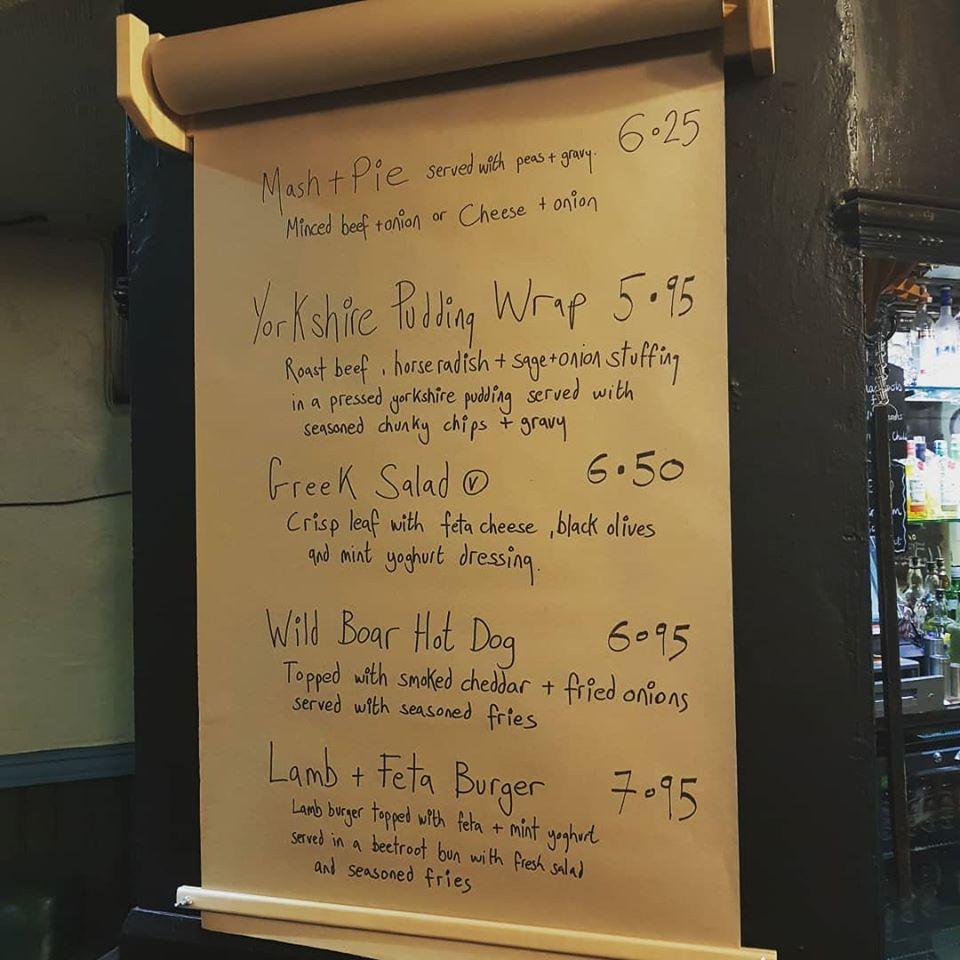 6.25
Mash + Pie served with peas + gravy.
Minced beef + onion or Cheese + onion
Yorkshire Pudding Wrap 5.95
Roast beef, horseradish + sage + onion stuffing
in a pressed yorkshire pudding served with
seasoned chunky chips + gravy
Greek Salad (v) 6.50
Crisp leaf with feta cheese, black olives
and mint yoghurt dressing.
Wild Boar Hot Dog 6.95
Topped with smoked cheddar + fried onions
served with seasoned fries
Lamb + Feta Burger 7.95
Lamb burger topped with feta + mint yoghurt
served in a beetroot bun with fresh salad
and seasoned fries